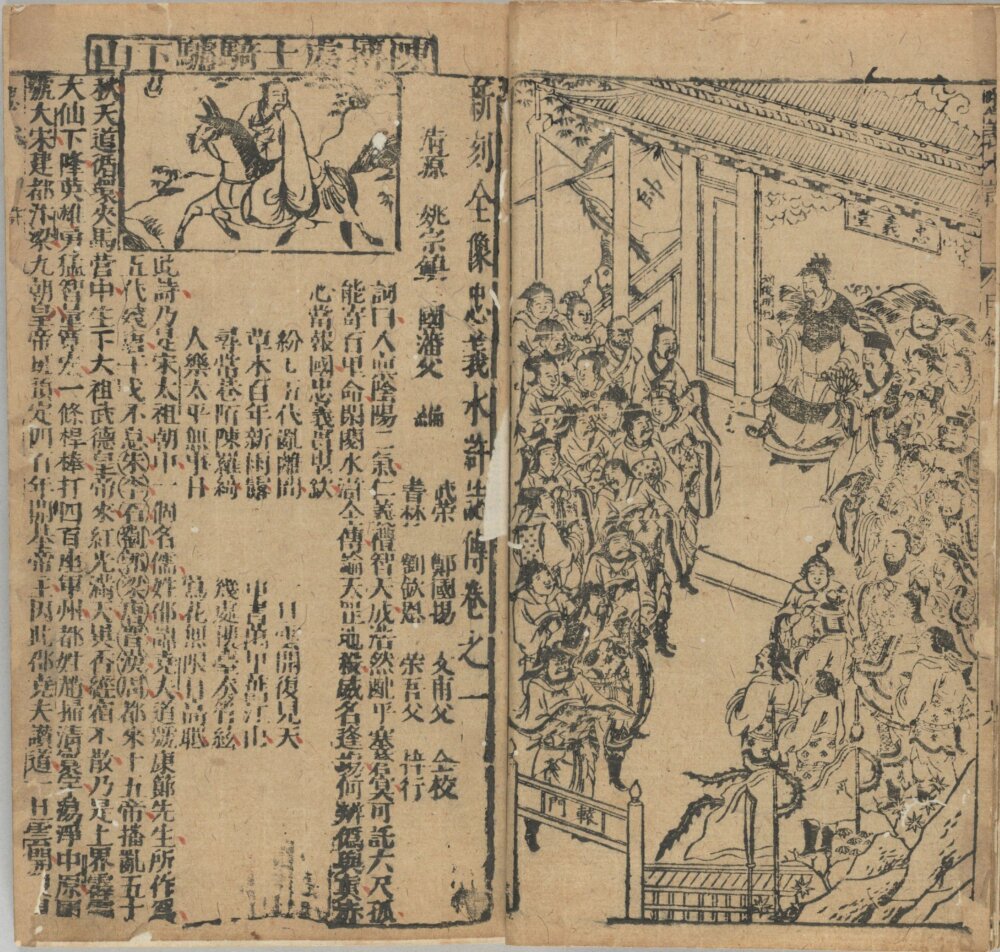 忠義堂
帥
轅門
新刻全像忠義水滸誌傳卷之一
清源 姚宗鎮 國藩父 編
武榮 鄭國揚 文甫父 仝校
書林 劉欽恩 榮吾父 梓行
詞曰人稟陰陽二氣仁義禮智天成浩然配乎塞蒼冥可託六尺孤
能寄百里命閑閱水滸全傳論天罡地煞威名逢場何辨偽與真赤
心當報國忠義貫
紛紛五代亂離間 一旦雲開復見天
草木百年新雨露 車書萬里舊江山
尋常巷陌陳羅綺 幾處樓臺奏管絃
人樂太平無事日 鶯花無限日高眠
此詩乃是宋太祖朝中一個名儒姓邵諱堯夫道號康節先生所作為
五代殘唐干戈不息朱李石劉郭梁唐晉漢周都來十五帝播亂五十
秋天道循環夾馬營中生下太祖武德皇帝來紅光滿天異香經宿不散乃是上界霹靂
大仙下降英雄勇猛智量寬宏一條桿棒打四百座軍州都姓趙掃清寰宇蕩淨中原國
號大宋建都汴梁九朝皇帝班頭四百年開基帝王因此邵堯夫讚道一旦雲開復見
陳摶處士騎驢下山